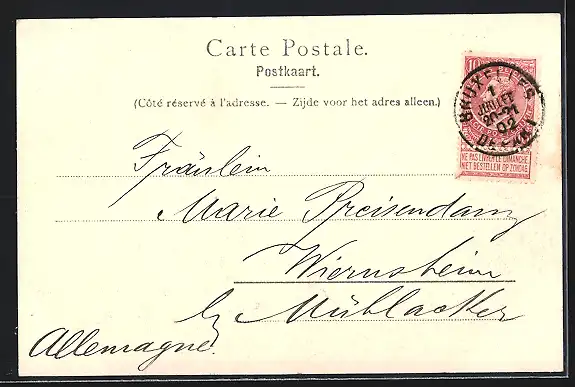 Carte Postale.
Postkaart.
(Côté réservé à l'adresse. — Zijde voor het adres alleen.)
10
BRUXELLES
1
JUILLET
20-21
02
DEPART
NE PAS LIVRER LE DIMANCHE
NIET BESTELLEN OP ZONDAG
Fräulein
Marie Preisendanz
Wiernsheim
by Mühlacker
Allemagne.